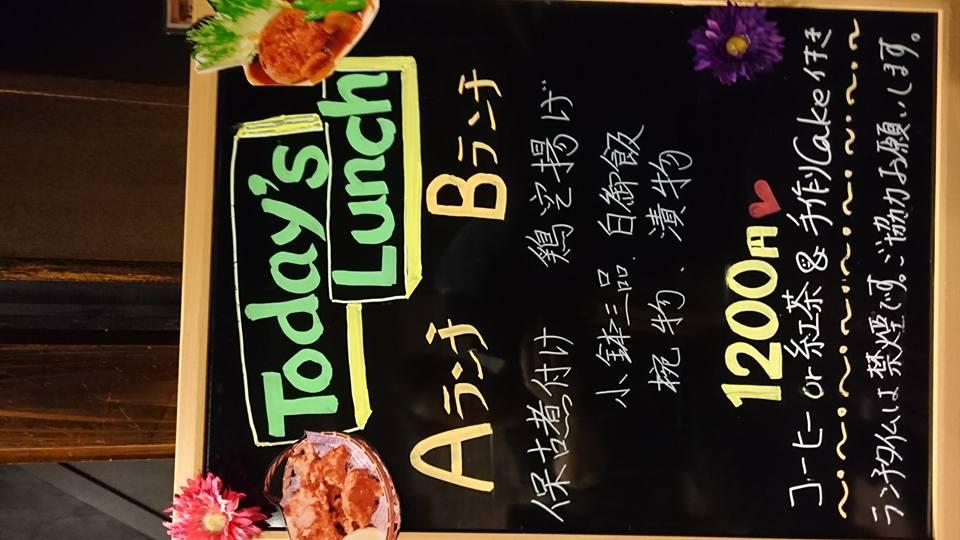 Today's
Lunch
Aランチ Bランチ
保古煮付け 鶏空揚げ
小鉢三品. 白御飯
椀物、漬物
1200円
コーヒー or 紅茶 & 手作りCake付き
ランチタイムは禁煙です。ご協力お願いします。